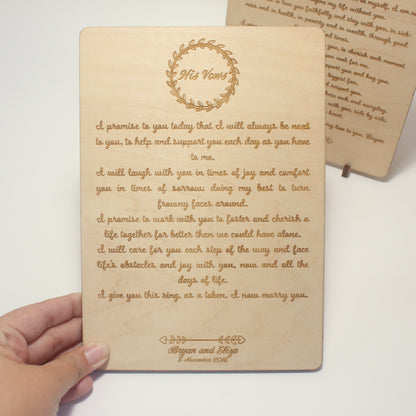 His Vows
I promise to you today that I will always be next
to you, to help and support you each day as you have
to me.
I will laugh with you in times of joy and comfort
you in times of sorrow; doing my best to turn
frowny faces around.
I promise to work with you to foster and cherish a
life together for better than we could have alone.
I will care for you each step of the way and face
life's obstacles and joy with you, now and all the
days of life.
I give you this ring, as a token, I now marry you.
Bryan and Eliza
5 November 2016
my life without you.
you faithfully and stay with you, in sick-
ness and in health, in poverty and in wealth, through good
to cherish each moment